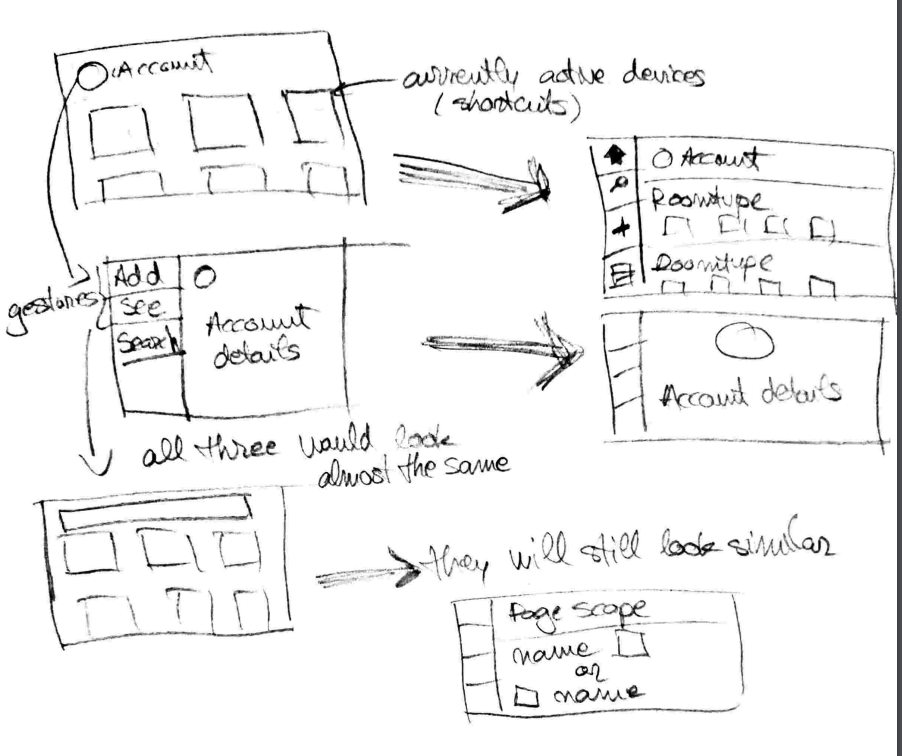 Account
currently active devices
(shortcuts)
Account
Roomtype
Roomtype
gestures
Add
see
Search
Account
details
Account details
all three would look
almost the same
they will still look similar
Page scope
name
or
name